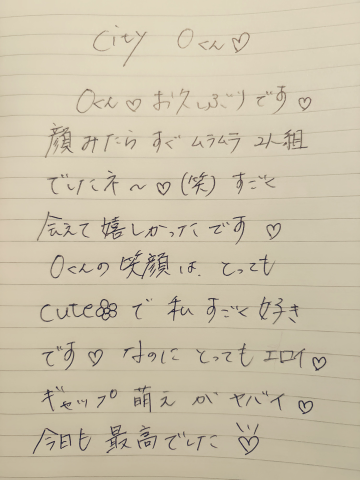 City Oくん♡
Oくん♡お久しぶりです♡
顔みたらすぐムラムラ2人組
でしたネ〜♡(笑)すごく
会えて嬉しかったです♡
Oくんの笑顔は、とっても
cute🌼で私すごく好き
です♡なのにとってもエロイ♡
ギャップ萌えがヤバイ♡
今日も最高でした♡